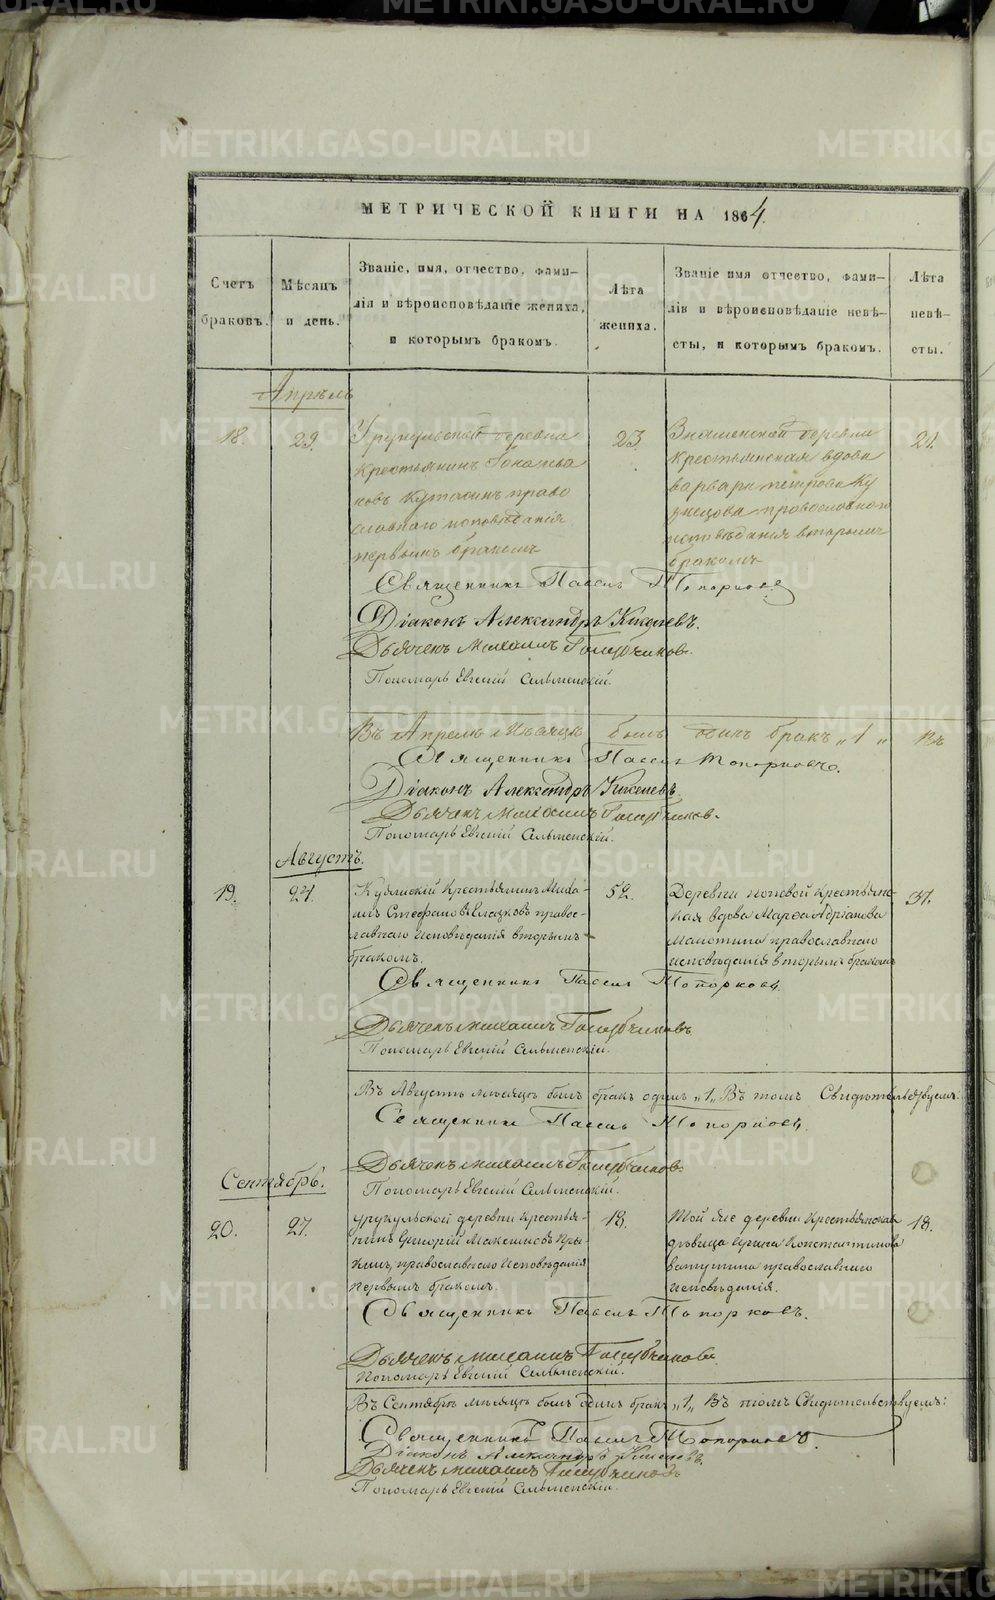 METRIKI.GASO-URAL.RU
МЕТРИЧЕСКОЙ КНИГИ НА 1864.
Счетъ браковъ.
Мѣсяцъ и день.
Званіе, имя, отчество, фами-
лія и вѣроисповѣданіе жениха,
и которымъ бракомъ.
Лѣта жениха.
Званіе имя отчество, фами-
лія и вѣроисповѣданіе невѣ-
сты, и которымъ бракомъ.
Лѣта невѣ-
сты.
Апрѣль
18.
29.
деревни
крестьянинъ
право
славнаго исповѣданія
первымъ бракомъ
23.
Знаменской деревни
крестьянская вдова
варвара петрова Ку
знецова православнаго
исповѣданія вторымъ
бракомъ
21.
Священникъ Павелъ Топорковъ
Діаконъ Александръ Киселевъ.
Дьячекъ Михаилъ
Пономарь Евгеній Сельменскій.
Въ Апрелѣ мѣсяцѣ былъ одинъ бракъ „1„ Въ
Священникъ Павелъ Топорковъ.
Діаконъ Александръ Киселевъ.
Дьячекъ Михаилъ
Пономарь Евгеній Сельменскій.
Августъ.
19.
24.
Крестьянинъ Миха-
илъ Стефановъ правос-
лавнаго исповѣданія вторымъ
бракомъ.
52.
Деревни поповой крестьянс-
кая вдова Марѳа Адріанова
православнаго
исповѣданія вторымъ бракомъ
37.
Священникъ Павелъ Топорковъ.
Дьячекъ Михаилъ
Пономарь Евгеній Сельменскій.
Въ Августѣ мѣсяцѣ былъ бракъ одинъ „1„ Въ томъ Свидѣтельствуемъ:
Священникъ Павелъ Топорковъ.
Дьячекъ Михаилъ
Пономарь Евгеній Сельменскій.
Сентябрь.
20.
27.
деревни Крестья-
нинъ Григорій Максимовъ
православнаго исповѣданія
первымъ бракомъ.
18.
Той же деревни Крестьянская
дѣвица Ирина Константинова
православнаго
исповѣданія.
18.
Священникъ Павелъ Топорковъ.
Дьячекъ Михаилъ
Пономарь Евгеній Сельменскій.
Въ Сентябрѣ мѣсяцѣ былъ одинъ бракъ „1„ Въ томъ Свидѣтельствуемъ:
Священникъ Павелъ Топорковъ.
Діаконъ Александръ Киселевъ.
Дьячекъ Михаилъ
Пономарь Евгеній Сельменскій.